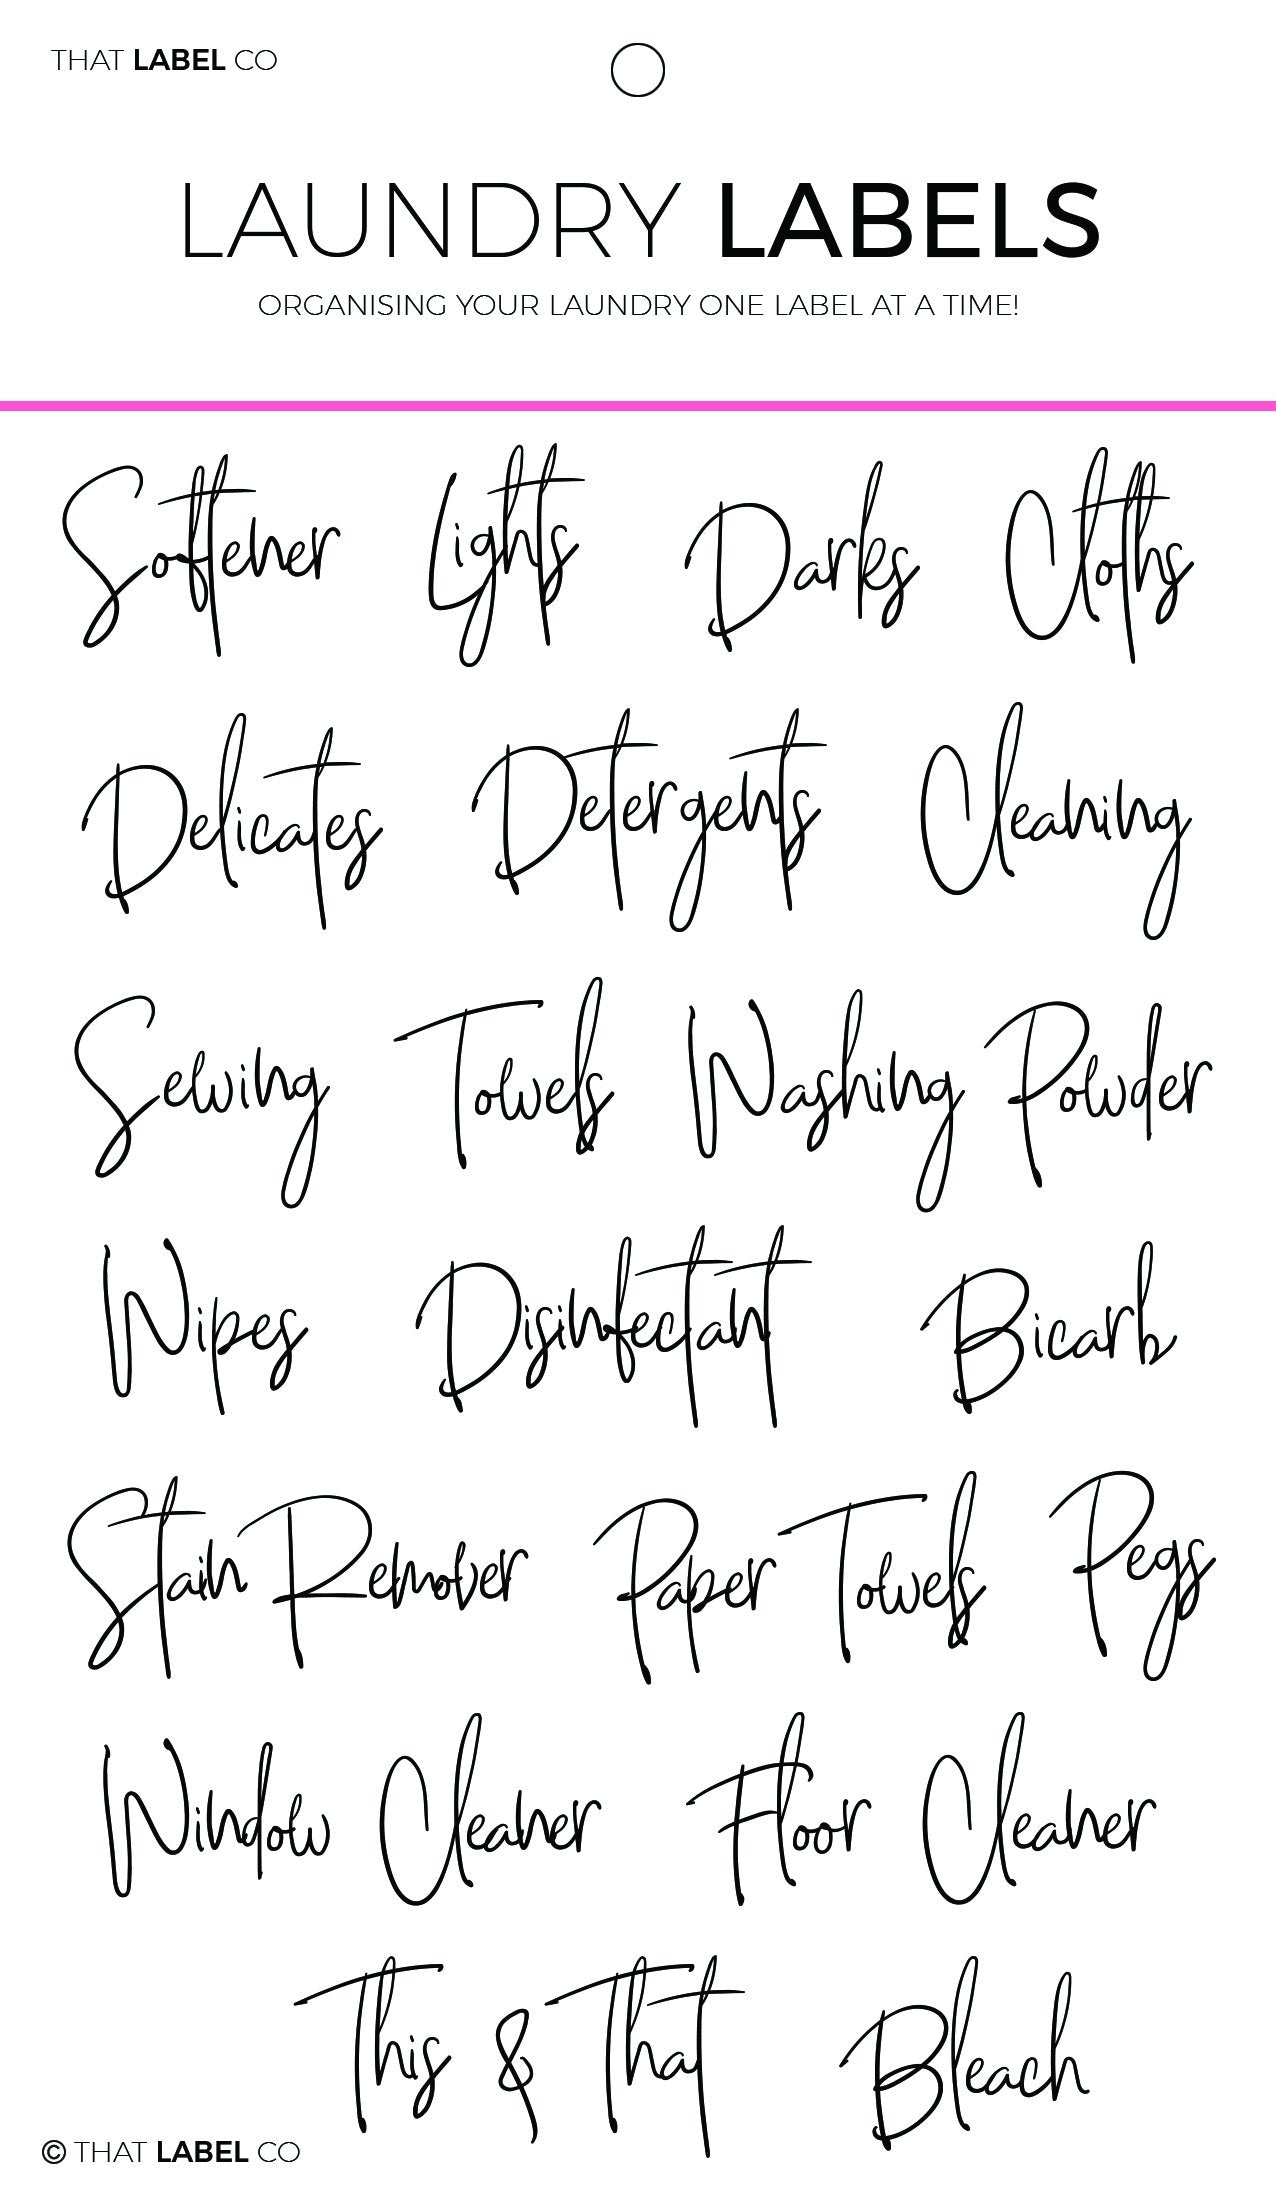 THAT LABEL CO
LAUNDRY LABELS
ORGANISING YOUR LAUNDRY ONE LABEL AT A TIME!
Softener Lights Darks Cloths
Delicates Detergents Cleaning
Sewing Towels Washing Powder
Wipes Disinfectant Bicarb
Stain Remover Paper Towels Pegs
Window Cleaner Floor Cleaner
This & That Bleach
© THAT LABEL CO